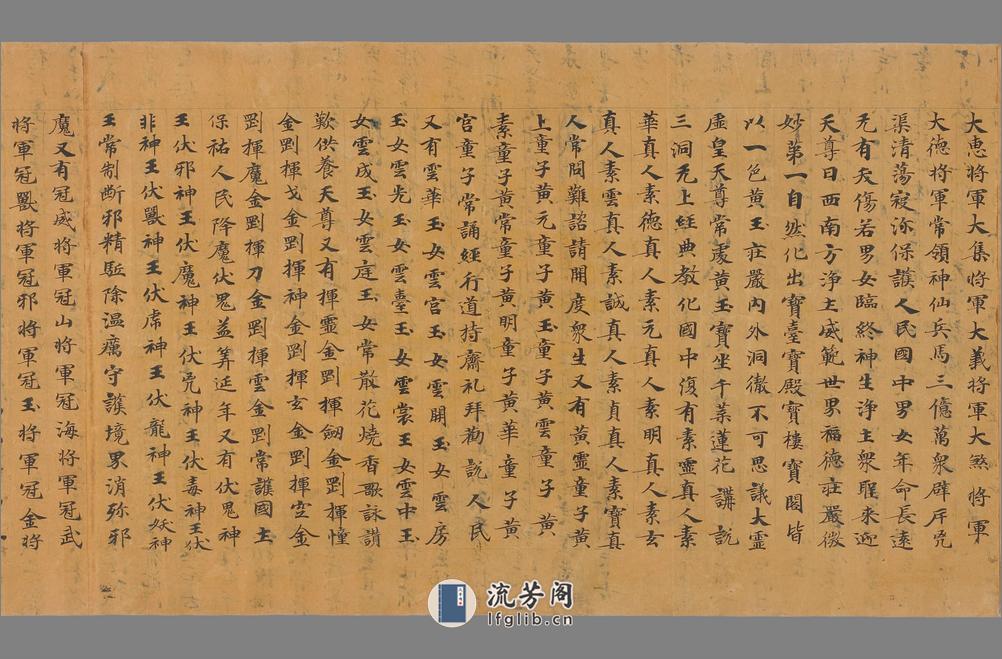 大惠將軍大集將軍大義將軍大煞將軍
大德將軍常領神仙兵馬三億萬衆辟斥兇
渠清蕩寇沴保護人民國中男女年命長遠
无有夭傷若男女臨終神生浄土衆聖來迎
天尊曰西南方浄土威範世界福德莊嚴微
妙第一自然化出寶臺寶殿寶樓寶閣皆
以一色黃玉莊嚴內外洞徹不可思議大靈
虛皇天尊常處黃玉寶坐千葉蓮花講說
三洞无上經典教化國中復有素靈真人素
華真人素德真人素元真人素明真人素玄
真人素雲真人素誠真人素貞真人素寶真
人常問難諮請開度衆生又有黃靈童子黃
上童子黃元童子黃玉童子黃雲童子黃
素童子黃常童子黃明童子黃華童子黃
宮童子常誦經行道持齋礼拜勸說人民
又有雲華玉女雲宮玉女雲開玉女雲房
玉女雲光玉女雲臺玉女雲裳玉女雲中玉
女雲成玉女雲庭玉女常散花燒香歌詠讃
歎供養天尊又有揮靈金剛揮劔金剛揮幢
金剛揮戈金剛揮神金剛揮玄金剛揮空金
剛揮魔金剛揮刀金剛揮雲金剛常護國土
保祐人民降魔伏鬼益筭延年又有伏鬼神
王伏邪神王伏魔神王伏兇神王伏毒神王伏
非神王伏獸神王伏虎神王伏龍神王伏妖神
王常制断邪精駈除温癘守護境界消弥邪
魔又有冠威將軍冠山將軍冠海將軍冠武
將軍冠獸將軍冠邪將軍冠玉將軍冠金將
流芳阁
lfglib.cn